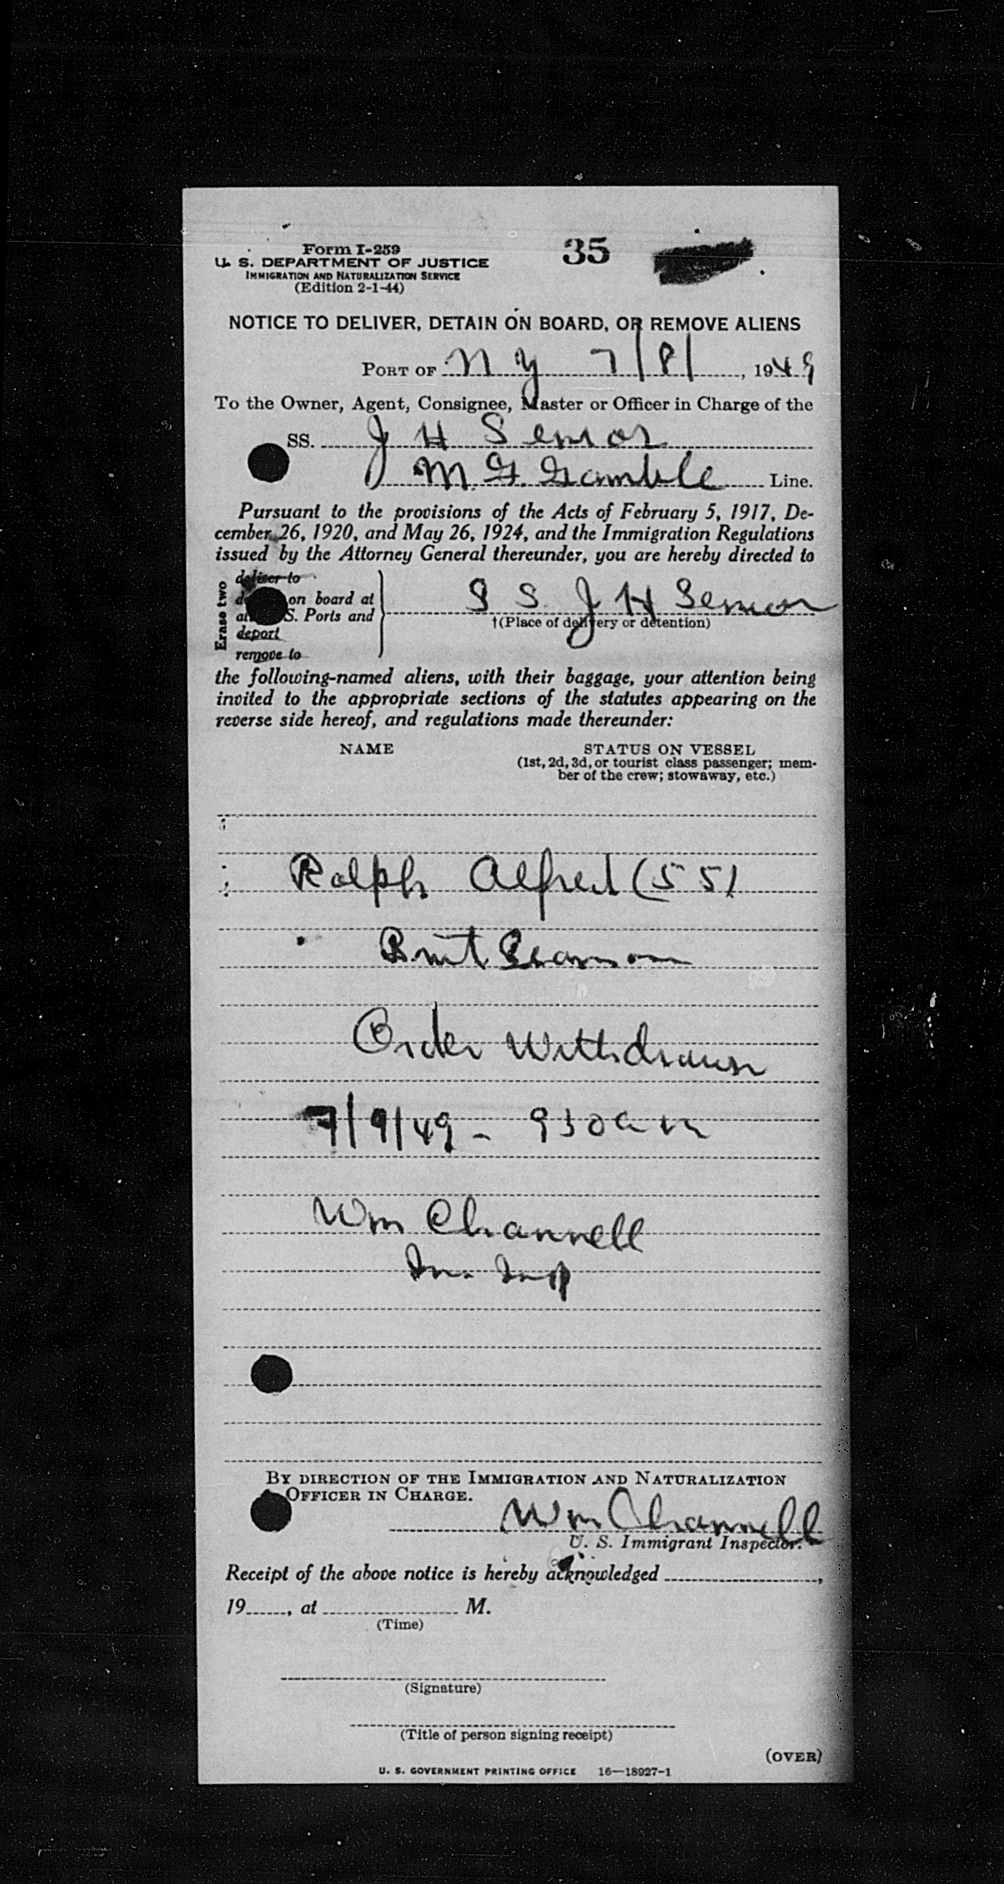 Form I-259
35
U. S. DEPARTMENT OF JUSTICE
IMMIGRATION AND NATURALIZATION SERVICE
(Edition 2-1-44)
NOTICE TO DELIVER, DETAIN ON BOARD, OR REMOVE ALIENS
PORT OF N Y 7/8/, 1949
To the Owner, Agent, Consignee, Master or Officer in Charge of the
SS. J H Senior
M. G. Gamble Line.
Pursuant to the provisions of the Acts of February 5, 1917, De-
cember 26, 1920, and May 26, 1924, and the Immigration Regulations
issued by the Attorney General thereunder, you are hereby directed to
Erase two
deliver to
on board at
S. Ports and
deport
remove to
S S. J H Senior
†(Place of delivery or detention)
the following-named aliens, with their baggage, your attention being
invited to the appropriate sections of the statutes appearing on the
reverse side hereof, and regulations made thereunder:
NAME STATUS ON VESSEL
(1st, 2d, 3d, or tourist class passenger; mem-
ber of the crew; stowaway, etc.)
Ralph Alfred (55)
Brit Seaman
Order Withdrawn
7/9/49 - 930 am
Wm Channell
Im. Insp
BY DIRECTION OF THE IMMIGRATION AND NATURALIZATION
OFFICER IN CHARGE.
Wm Channell
U. S. Immigrant Inspector.
Receipt of the above notice is hereby acknowledged ,
19 , at M.
(Time)
(Signature)
(Title of person signing receipt)
(OVER)
U. S. GOVERNMENT PRINTING OFFICE 16—18927-1